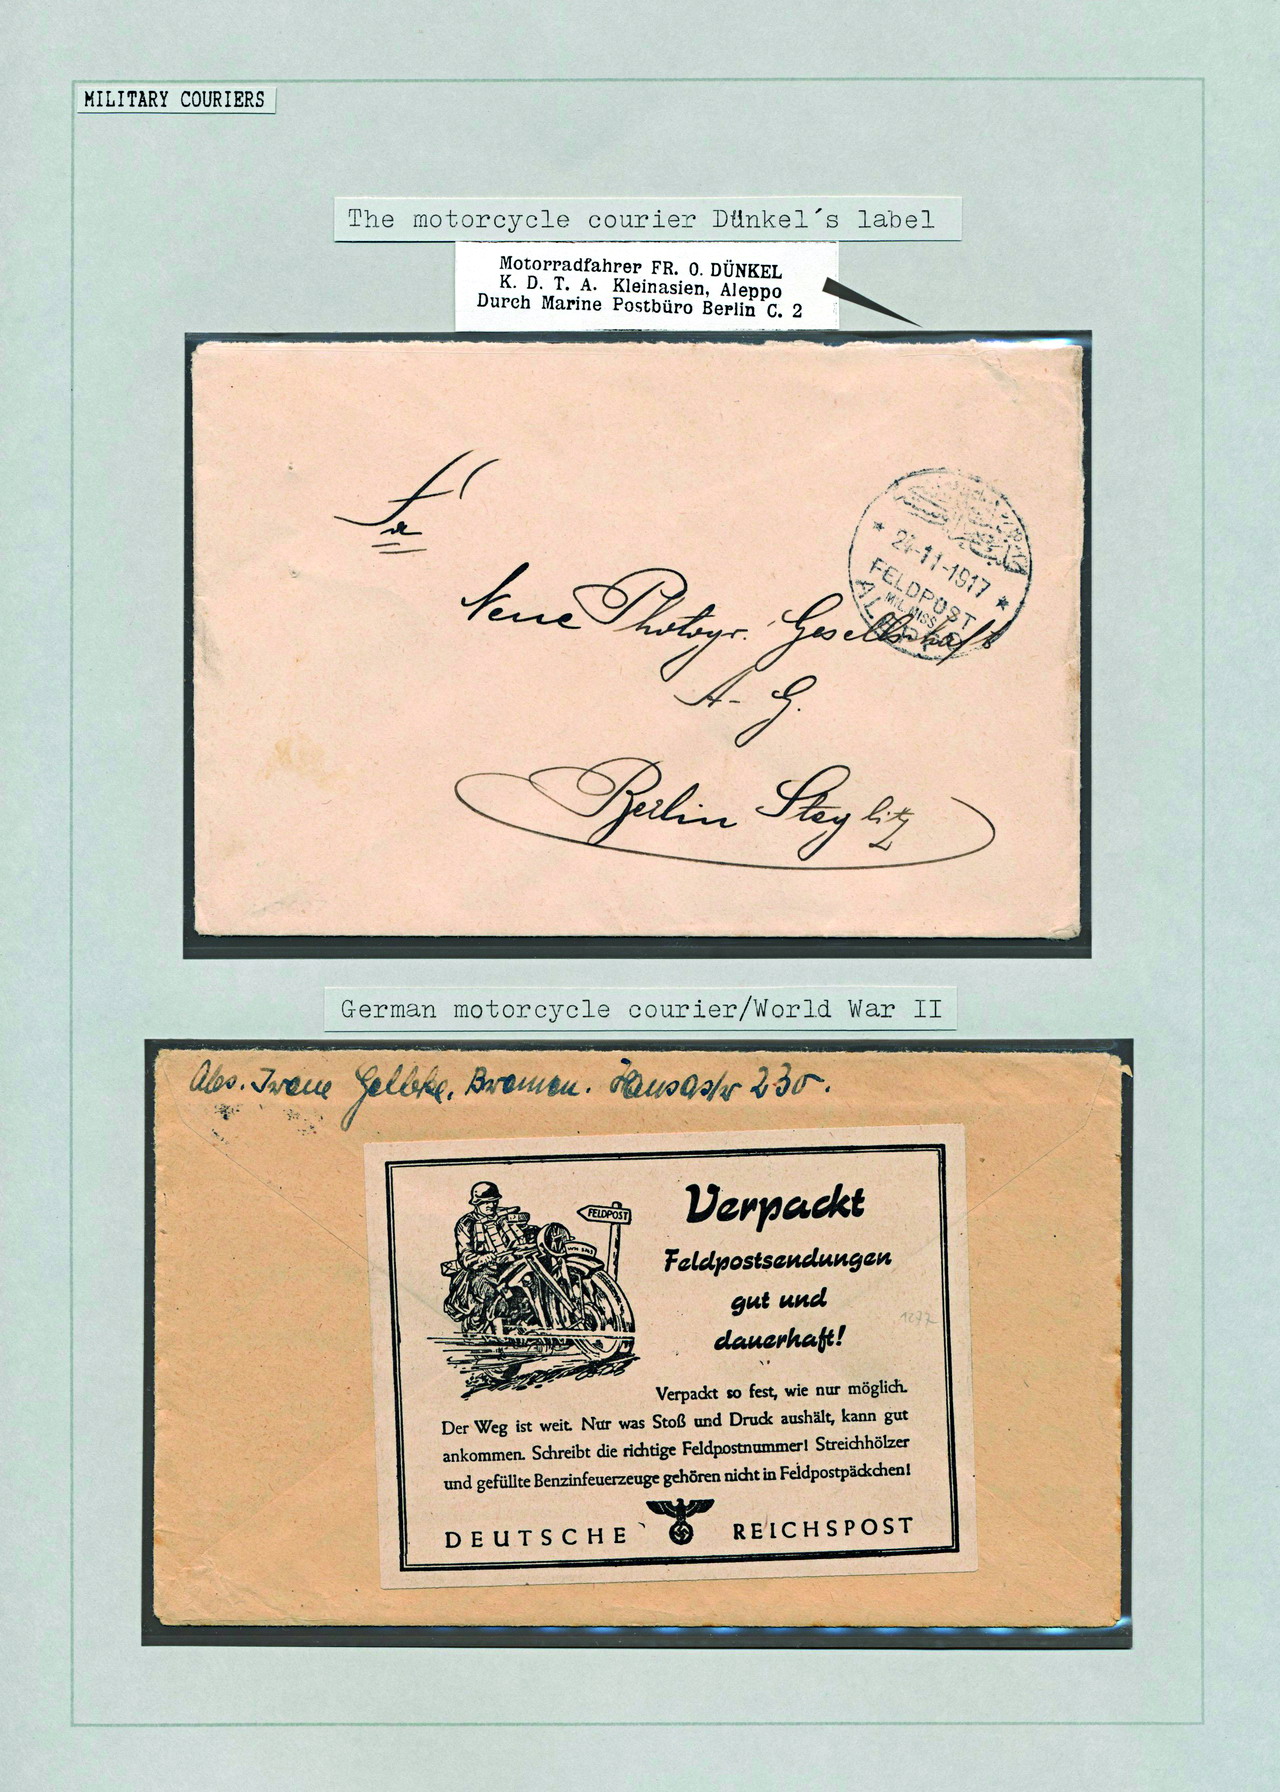 MILITARY COURIERS
The motorcycle courier Dünkel´s label
Motorradfahrer FR. O. DÜNKEL
K. D. T. A. Kleinasien, Aleppo
Durch Marine Postbüro Berlin C. 2
Fa
24-11-1917
FELDPOST
MIL. MISS
Neue Photogr. Gesellschaft
A-G.
Berlin Steglitz
German motorcycle courier/World War II
Abs. Irene Gelbke, Bremen. Hansastr 230.
FELDPOST
Verpackt
Feldpostsendungen
gut und
dauerhaft!
1277
Verpackt so fest, wie nur möglich.
Der Weg ist weit. Nur was Stoß und Druck aushält, kann gut
ankommen. Schreibt die richtige Feldpostnummer! Streichhölzer
und gefüllte Benzinfeuerzeuge gehören nicht in Feldpostpäckchen!
DEUTSCHE REICHSPOST